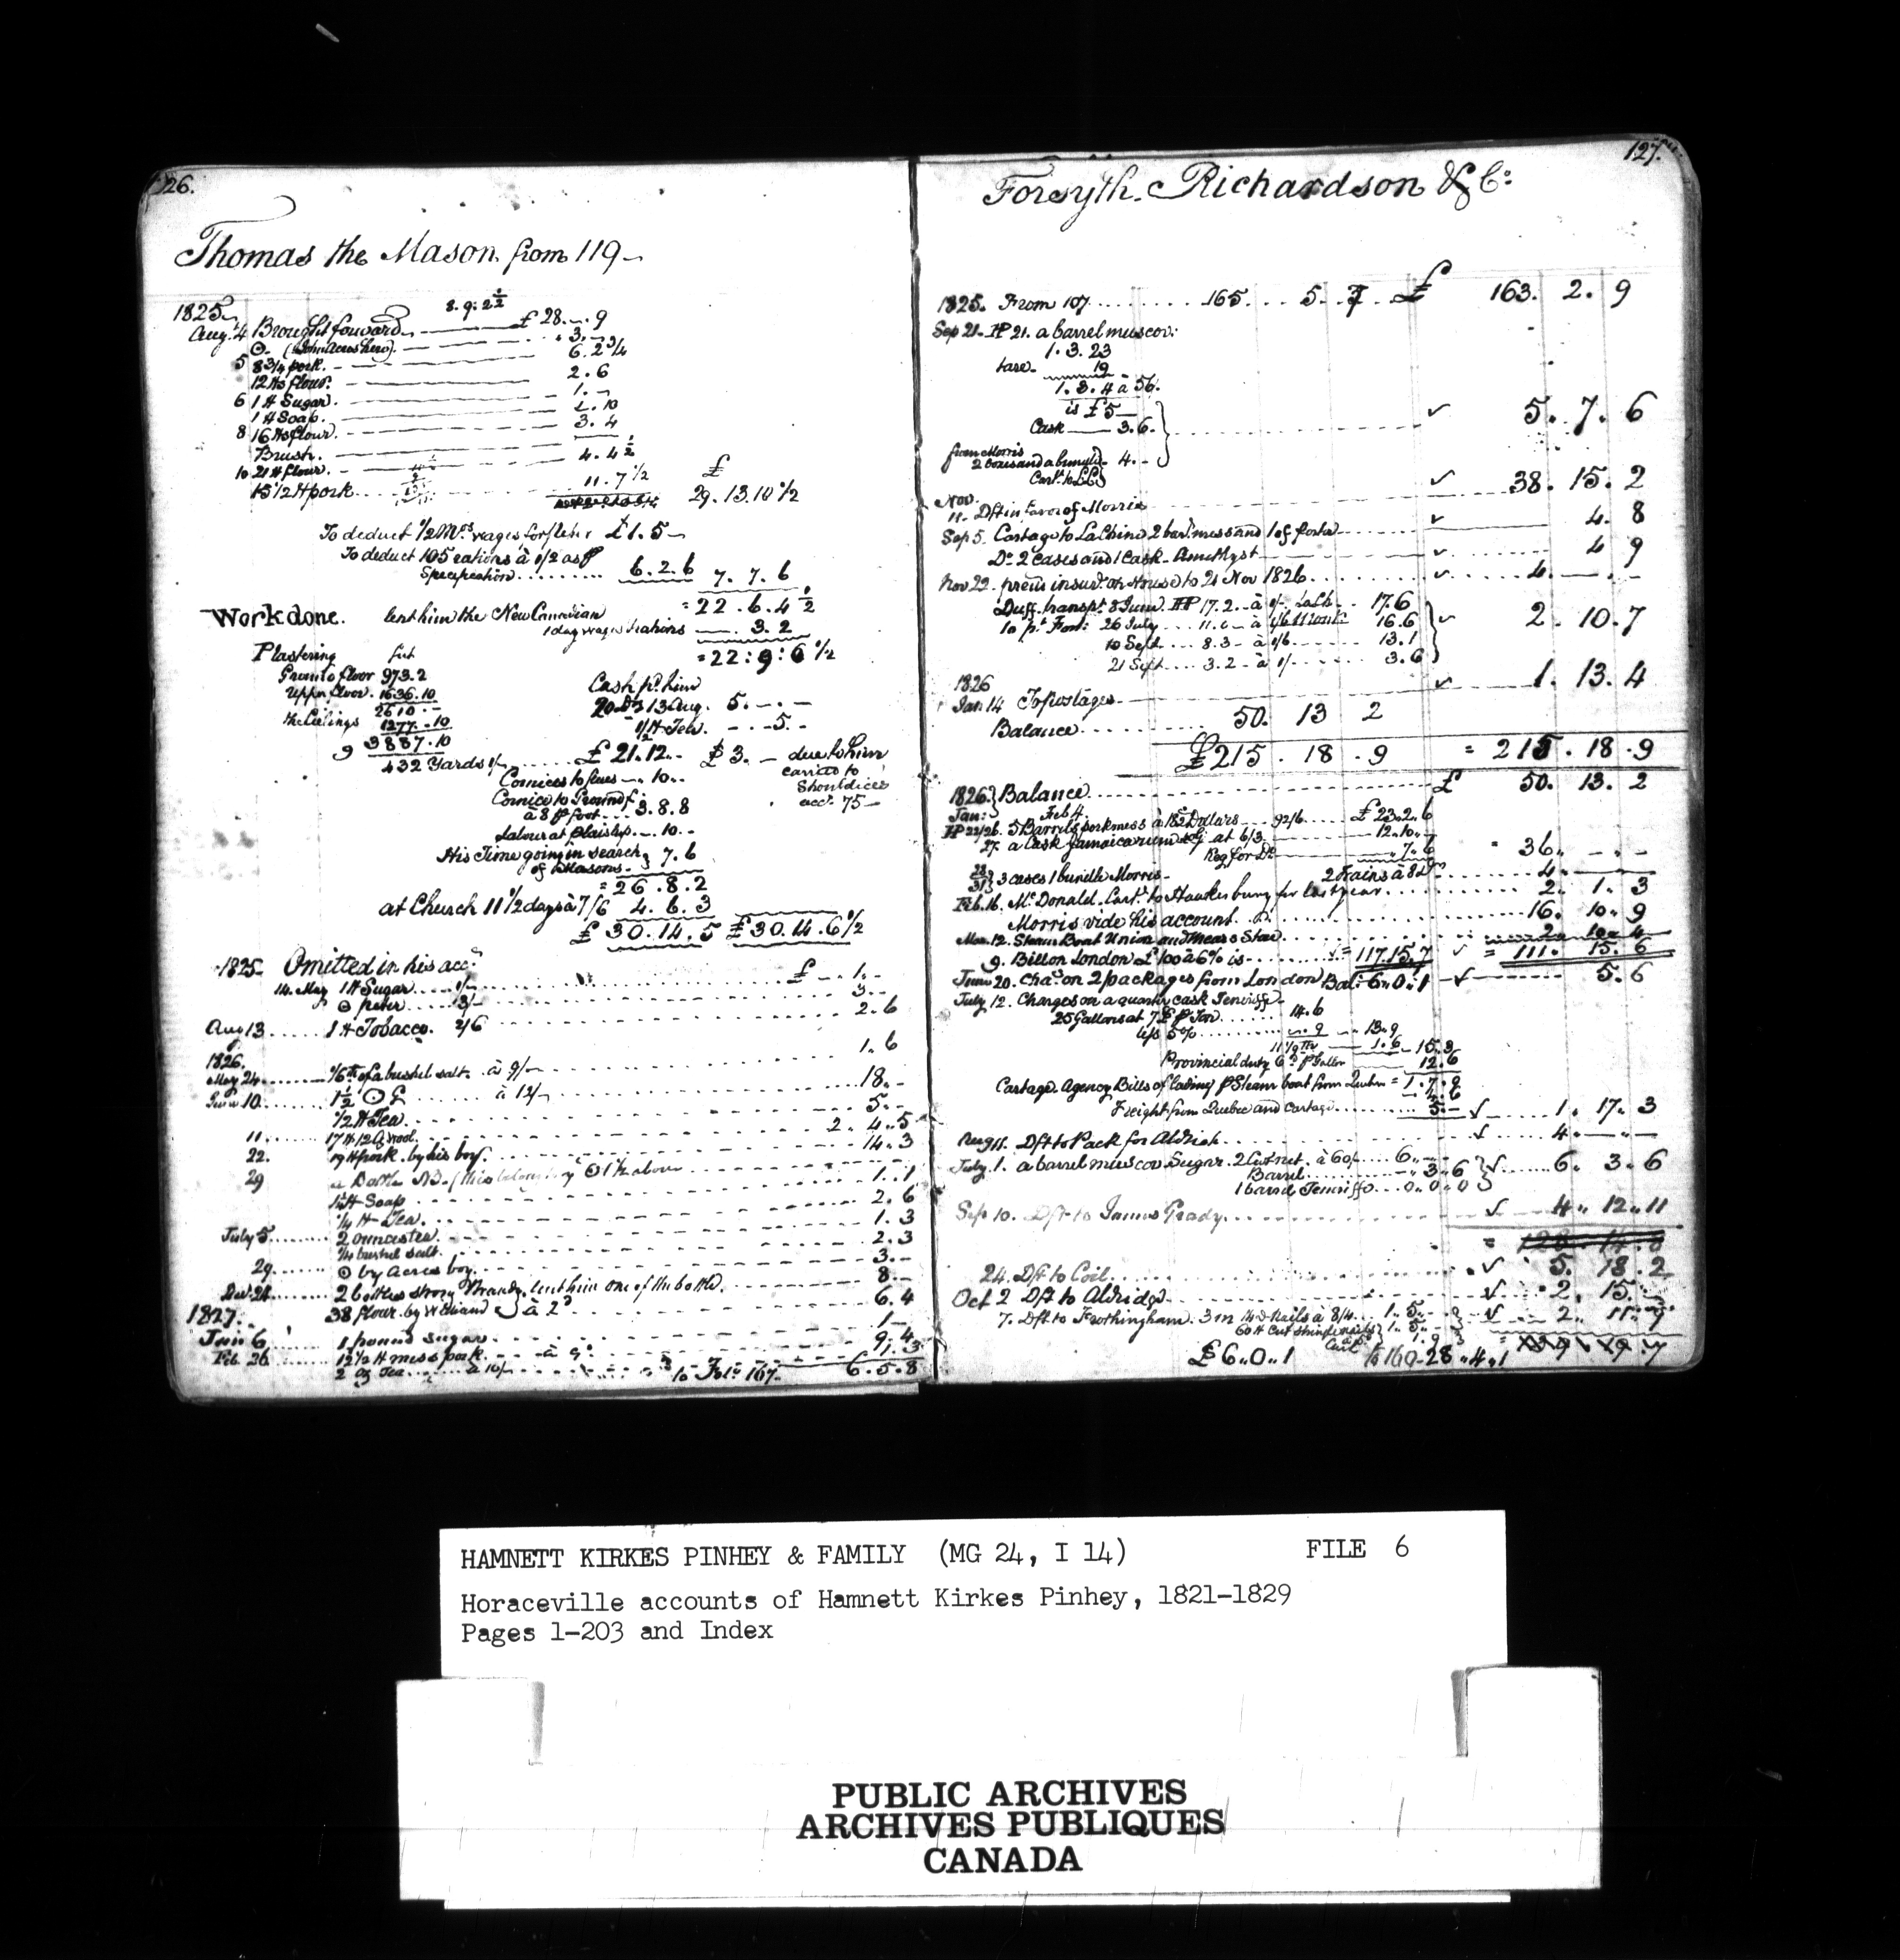 126.
Thomas the Mason from 119
1825 8. 9. 2 1/2
Augt 4 Brought forward £ 28. - . 9
(John Acres hero) 3. -
5 8 3/4 pork. 6. 2 3/4
12 lbs flour. 2. 6
6 1 lb Sugar. 1. -
1 lb Soap. 1. 10
8 16 lbs flour. 3. 4
Brush.
10 21 lb flour. 4. 4 1/2
15 1/2 lb pork 11. 7 1/2 £ 29. 13. 10 1/2
To deduct 1/2 Mos wages £1. 5 -
To deduct 105 rations à 1/2 as p
Specification 6. 2. 6 7. 7. 6
= 22. 6. 4 1/2
Work done. lent him the New Canadian
1 day wages & rations 3. 2
= 22: 9: 6 1/2
Plastering feet
Ground floor 973. 2
Upper floor. 1636. 10
2610. -
the Ceilings 1277. 10
9 3887. 10
432 Yards 1/- £ 21. 12. -
Cash pd. him
20 Ds 13 Aug. 5. - . -
1/2 lb Tea. - . 5. -
£ 3. - due to him
carried to
Shouldices
acct. 75 -
Cornices to flues - . 10. -
Cornice to Ground f.
à 8 p foot 3. 8. 8
Labour at plaistg - . 10. -
His Time going in search
of Masons. 7. 6
= 26. 8. 2
at Church 11 1/2 days à 7/6 4. 6. 3
£ 30. 14. 5 £ 30. 14. 6 1/2
1825 Omitted in his acct.
14. May 1 lb Sugar 1/- £ - . 1. -
peter 3/- 3. -
Aug 13 1 lb Tobacco. 2/6 2. 6
1826.
May 24 1/6th of a bushel salt. à 9/- 1. 6
June 10 1 1/2 G à 12/- 18. -
1/2 lb Tea 5. -
11 17 lb 12 oz wool. 2. 4. 5
22. 19 lb pork by his boy. 14. 3
29 a Bottle N.B. (this belong by 1 1/2 above
1 1/4 lb Soap 1. 1
1/4 lb Tea. 2. 6
July 5 2 ounces tea. 1. 3
1/4 bushel salt. 2. 3
29 by Acres boy. 3. -
Dec. 24 2 bottles strong Brandy. lent him one of the bottle. 8. -
1827. 38 flour. by William à 2d 6. 4
Jan 6 1 pound sugar. 1 -
Feb. 26 12 1/2 lb mess pork. à 9d 9. 4
2 oz Tea à 10/- 1. 3
to Folo 167. 6. 5. 8
127.
Forsyth. Richardson & Co:
1825. From 107 165. 5. 7 £ 163. 2. 9
Sep 21. HP 21. a barrel muscov:
1. 3. 23
tare. 19
1. 3. 4 à 56.
is £5 -
Cask 3. 6. 5. 7. 6
from Morris
2 boxes and a bundle 4. -
Cart. to
Nov.
11. Dft in favor of Morris 38. 15. 2
Sep 5. Cartage to La Chine 2 barls. mess and 1 of porter 4. 8
Do 2 cases and 1 Cask - Amethyst 4 9
Nov 22. prem insurce on House to 21 Nov 1826 4. - . -
Duff. transpt. 8 June HP 17. 2 - à 1/- 17. 6
to pt. Fort: 26 July 11. 0 - à 1/6 16. 6 2. 10. 7
10 Sept 8. 3 - à 1/6 13. 1
21 Sept 3. 2 - à 1/- 3. 6
1826
Jan 14 To postages 1. 13. 4
Balance 50. 13 2
£215. 18. 9 = 215. 18. 9
1826. Balance £ 50. 13. 2
Jan: Feb 4.
HP 22/26. 5 Barrels pork mess à 18 1/2 Dollars 92/6 £ 23. 2. 6
27. a Cask Jamaica rum at 6/3 12. 10. -
Keg for Do 7. 6 36. - . -
28/31 3 cases 1 bundle Morris - 2 trains à 8 D 4. -
Feb. 16. McDonald. Cart. to Hawkesbury for last year 2. 1. 3
Morris vide his account 16. 10. 9
Mar. 12. Steam Boat Union and Mears Star 2. 10. 4
9. Bill on London £100 à 6% is 117. 15. 7 = 111. 15. 6
June 20. Chas. on 2 packages from London Bal: 6. 0. 1 5. 6
July 12. Charges on a quarter cask Teneriffe
25 Gallons at 7 £ p Ton 14. 6
less 5% 9 13. 9
1. 6 15. 3
Provincial duty 6d p Gallon 12. 6
Cartage. Agency Bills of lading p Steam boat from Quebec = 1. 7. 9
4. 6
Freight from Quebec and Cartage 5. - 1. 17. 3
Aug 11. Dft to Pack for Aldrich 4. - . -
July. 1. a barrel muscov Sugar. 2 Cwt net. à 60/- 6. -
Barrel 3. 6 6. 3. 6
1 barrel Teneriffe 0. 0. 0
Sep 10. Dft to James Grady 4. 12. 11
= 128. 14. 8
24. Dft to Coil 5. 18. 2
Oct 2 Dft to Aldridge 2. 15. -
7. Dft to Frothingham. 3 m 14 d Nails à 8/4 1. 5. -
60 lb Cut shingle nails 1. 5. - 2. 11. 9
Cart. 1. 9
£ 6. 0. 1 to 160 - 28. 4. 1 139. 19. 7
HAMNETT KIRKES PINHEY & FAMILY (MG 24, I 14) FILE 6
Horaceville accounts of Hamnett Kirkes Pinhey, 1821-1829
Pages 1-203 and Index
PUBLIC ARCHIVES
ARCHIVES PUBLIQUES
CANADA